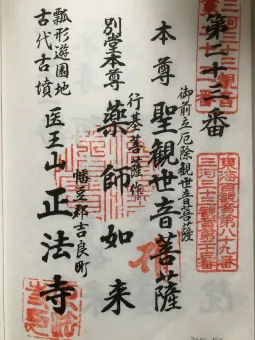 第二十三番
御前立厄除観世音菩薩
本尊聖観世音菩薩
行基菩薩作
別堂本尊薬師如来
幡豆郡吉良町
瓢形遊園地
古代古墳
医王山正法寺
東海百観音第八九番